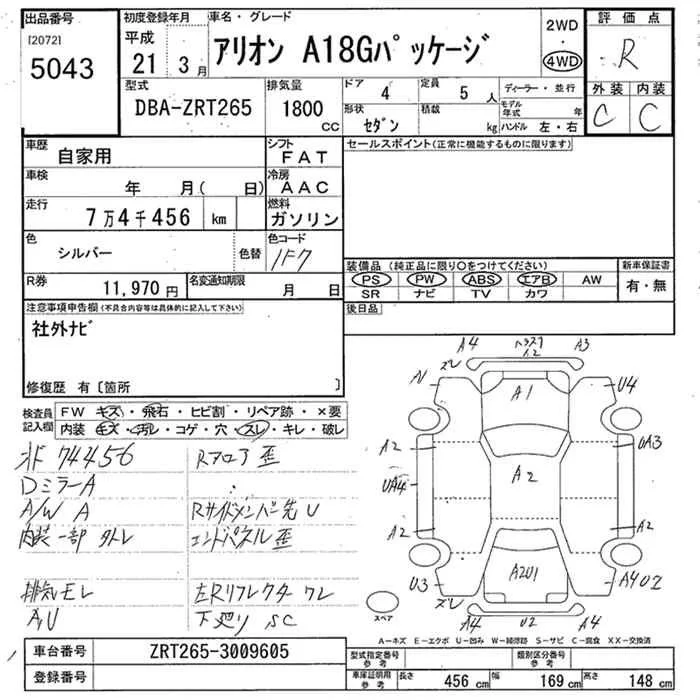 出品番号
[2072]
5043
初度登録年月
平成
21 3月
車名・グレード
アリオン A18Gパッケージ
2WD
・
4WD
評価点
R
外装 内装
C C
型式
DBA-ZRT265
排気量
1800
cc
ドア 4
定員 5 人
形状 セダン
積載 kg
ディーラー・並行
モデル年式 年
ハンドル 左・右
車歴
自家用
シフト
FAT
車検
年 月( 日)
冷房
AAC
走行
7万4千456 km
燃料
ガソリン
色
シルバー
色替
色コード
1F7
R券
11,970 円
名変通知期限
月 日
セールスポイント(正常に機能するものに限ります)
装備品 (純正品に限り○をつけてください)
PS PW ABS エアB AW
SR ナビ TV カワ
新車保証書
有・無
注意事項申告欄(不具合内容等は具体的に記入して下さい)
社外ナビ
修復歴 有〔箇所 〕
後日品
検査員記入欄
FW キズ・飛石・ヒビ割・リペア跡・×要
内装 キズ・汚レ・コゲ・穴・スレ・キレ・破レ
74456
DミラーA
A/W A
内装一部 外レ
排気モレ
A,U
Rフロア歪
Rサイドメンバー先U
エンドパネル歪
左Rリフレクターワレ
下廻り SC
A4
A2
A3
ズレ
A1
U4
A2
UA3
UA4
A2
A2
A2
U3
A2U1
A4U2
ズレ
A4
U2
A4
スペア
A-キズ E-エクボ U-凹み W-補修跡 S-サビ C-腐食 XX-交換済
車台番号
ZRT265-3009605
登録番号
型式指定番号
参考
類別区分番号
参考
車庫証明用
参考
長さ 456 cm
幅 169 cm
高さ 148 cm